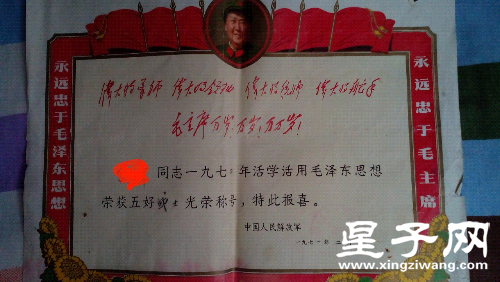 永远忠于毛泽东思想
伟大的导师 伟大的领袖 伟大的统帅 伟大的舵手
毛主席万岁!万岁!万万岁!
同志一九七 年活学活用毛泽东思想
荣获五好战士光荣称号,特此报喜。
中国人民解放军
一九七一年二
永远忠于毛主席
星子网
www.xingziwang.com